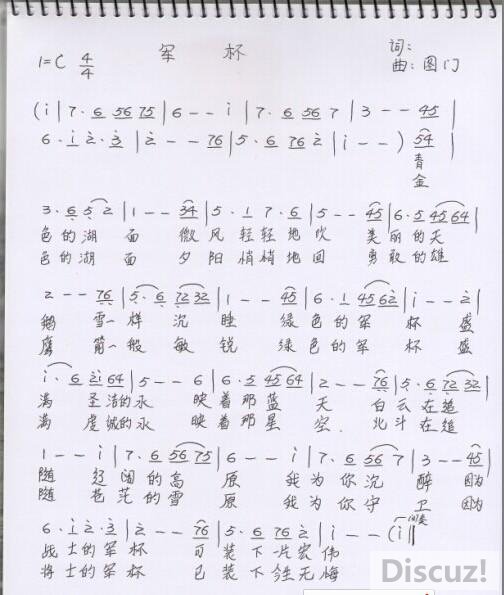 军杯
词:
1=C 4/4
曲:图门
(i | 7· 6 56 75 | 6 - - i | 7· 6 56 7 | 3 - - 45 |
6· i 2· 3 | 2 - - 76 | 5· 6 76 2 | i - - ) 54 |
青
金
3· 6 5 2 | 1 - - 34 | 5· 1 7· 6 | 5 - - 45 | 6· 5 45 64 |
色的湖 面 微风轻轻地吹 美丽的天
色的湖 面 夕阳悄悄地回 勇敢的雄
2 - - 76 | 5· 6 72 32 | 1 - - 45 | 6· 1 45 62 | i - - 2 |
鹅 雪一样沉睡 绿色的军 杯 盛
鹰 箭一般敏锐 绿色的军 杯 盛
i· 6 2i 64 | 5 - - 6 | 6· 5 45 64 | 2 - - 76 | 5· 6 72 32 |
满 圣洁的水 映着那蓝 天 白云在追
满 虔诚的水 映着那星 空 北斗在追
1 - - i | 7· 6 56 75 | 6 - - i | 7· 6 56 7 | 3 - - 45 |
随 辽阔的高 原 我为你沉 醉 因为
随 苍茫的雪 原 我为你守 卫 因为
6· i 2· 3 | 2 - - 76 | 5· 6 76 2 | i - - (i ‖ 间奏
战士的军杯 可装下一片宏伟
将士的军杯 已装下今生无悔
Discuz!